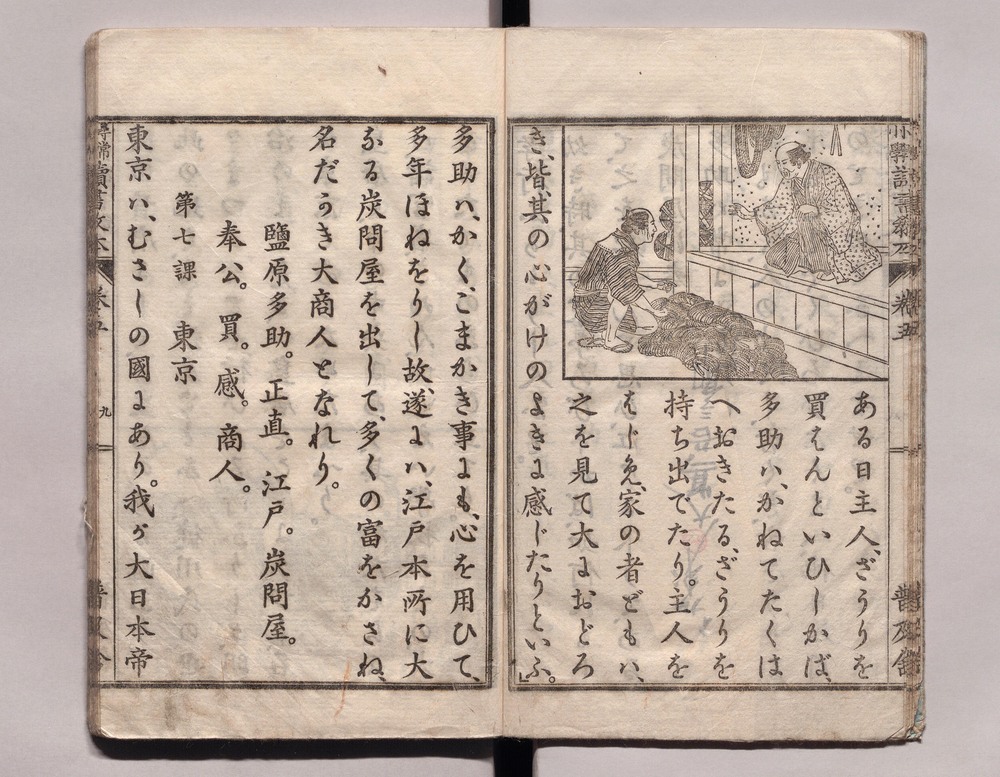 ある日主人、ざうりを
買はんといひしかば、
多助ハ、かねてたくは
へおきたる、ざうりを
持ち出でたり。主人を
はじめ、家の者どもハ、
之を見て大におどろ
き、皆、其の心がけのよきに感じたりといふ。」
多助ハ、かく、こまかき事にも、心を用ひて、
多年ほねをりし故、遂に八、江戸本所に大
なる炭問屋を出して、多くの富をかさね、
名だかき大商人となれり。
鹽原多助。正直。江戸。炭問屋。
奉公。買。感。商人。
第七課 東京
東京ハ、むさしの國にあり。我が大日本帝
尋常讀書敎本
卷五
九
普及舎